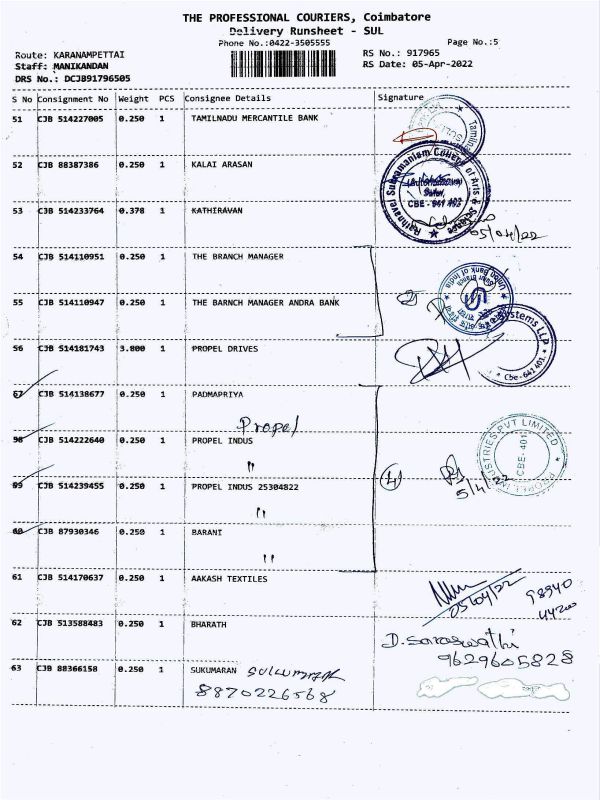 THE PROFESSIONAL COURIERS, Coimbatore
Delivery Runsheet - SUL
Phone No.:0422-3505555
Page No.:5
Route: KARANAMPETTAI
RS No.: 917965
Staff: MANIKANDAN
RS Date: 05-Apr-2022
DRS No.: DCJB91796505
S No Consignment No Weight PCS Consignee Details Signature
51 CJB 514227005 0.250 1 TAMILNADU MERCANTILE BANK
52 CJB 88387386 0.250 1 KALAI ARASAN
Rathnavel Subramaniam College of Arts & Science
(Autonomous)
Sulur,
CBE - 641 402
53 CJB 514233764 0.378 1 KATHIRAVAN
05/04/22
54 CJB 514110951 0.250 1 THE BRANCH MANAGER
Union Bank of India
55 CJB 514110947 0.250 1 THE BARNCH MANAGER ANDRA BANK
Systems LLP
Cbe-641 401.
56 CJB 514181743 3.800 1 PROPEL DRIVES
57 CJB 514138677 0.250 1 PADMAPRIYA
Propel
58 CJB 514222640 0.250 1 PROPEL INDUS
"
PROPEL INDUSTRIES PVT LIMITED
CBE- 401
59 CJB 514239455 0.250 1 PROPEL INDUS 25304822
"
4
5/4/22
60 CJB 87930346 0.250 1 BARANI
"
61 CJB 514170637 0.250 1 AAKASH TEXTILES
05/04/22
98940
44200
62 CJB 513588483 0.250 1 BHARATH
D. Saraswathi
9629605828
63 CJB 88366158 0.250 1 SUKUMARAN
8870226568